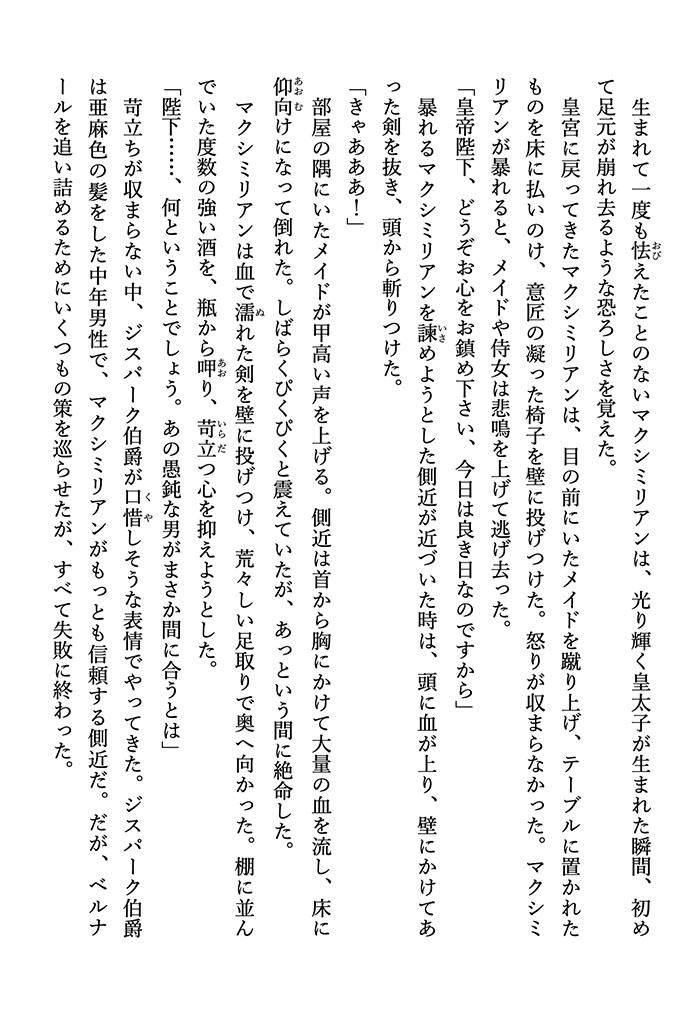 生まれて一度も怯えたことのないマクシミリアンは、光り輝く皇太子が生まれた瞬間、初め
て足元が崩れ去るような恐ろしさを覚えた。
　皇宮に戻ってきたマクシミリアンは、目の前にいたメイドを蹴り上げ、テーブルに置かれた
ものを床に払いのけ、意匠の凝った椅子を壁に投げつけた。怒りが収まらなかった。マクシミ
リアンが暴れると、メイドや侍女は悲鳴を上げて逃げ去った。
「皇帝陛下、どうぞお心をお鎮め下さい、今日は良き日なのですから」
　暴れるマクシミリアンを諫めようとした側近が近づいた時は、頭に血が上り、壁にかけてあ
った剣を抜き、頭から斬りつけた。
「きゃあああ！」
　部屋の隅にいたメイドが甲高い声を上げる。側近は首から胸にかけて大量の血を流し、床に
仰向けになって倒れた。しばらくぴくぴくと震えていたが、あっという間に絶命した。
　マクシミリアンは血で濡れた剣を壁に投げつけ、荒々しい足取りで奥へ向かった。棚に並ん
でいた度数の強い酒を、瓶から呷り、苛立つ心を抑えようとした。
「陛下……、何ということでしょう。あの愚鈍な男がまさか間に合うとは」
　苛立ちが収まらない中、ジスパーク伯爵が口惜しそうな表情でやってきた。ジスパーク伯爵
は亜麻色の髪をした中年男性で、マクシミリアンがもっとも信頼する側近だ。だが、ベルナ
ールを追い詰めるためにいくつもの策を巡らせたが、すべて失敗に終わった。